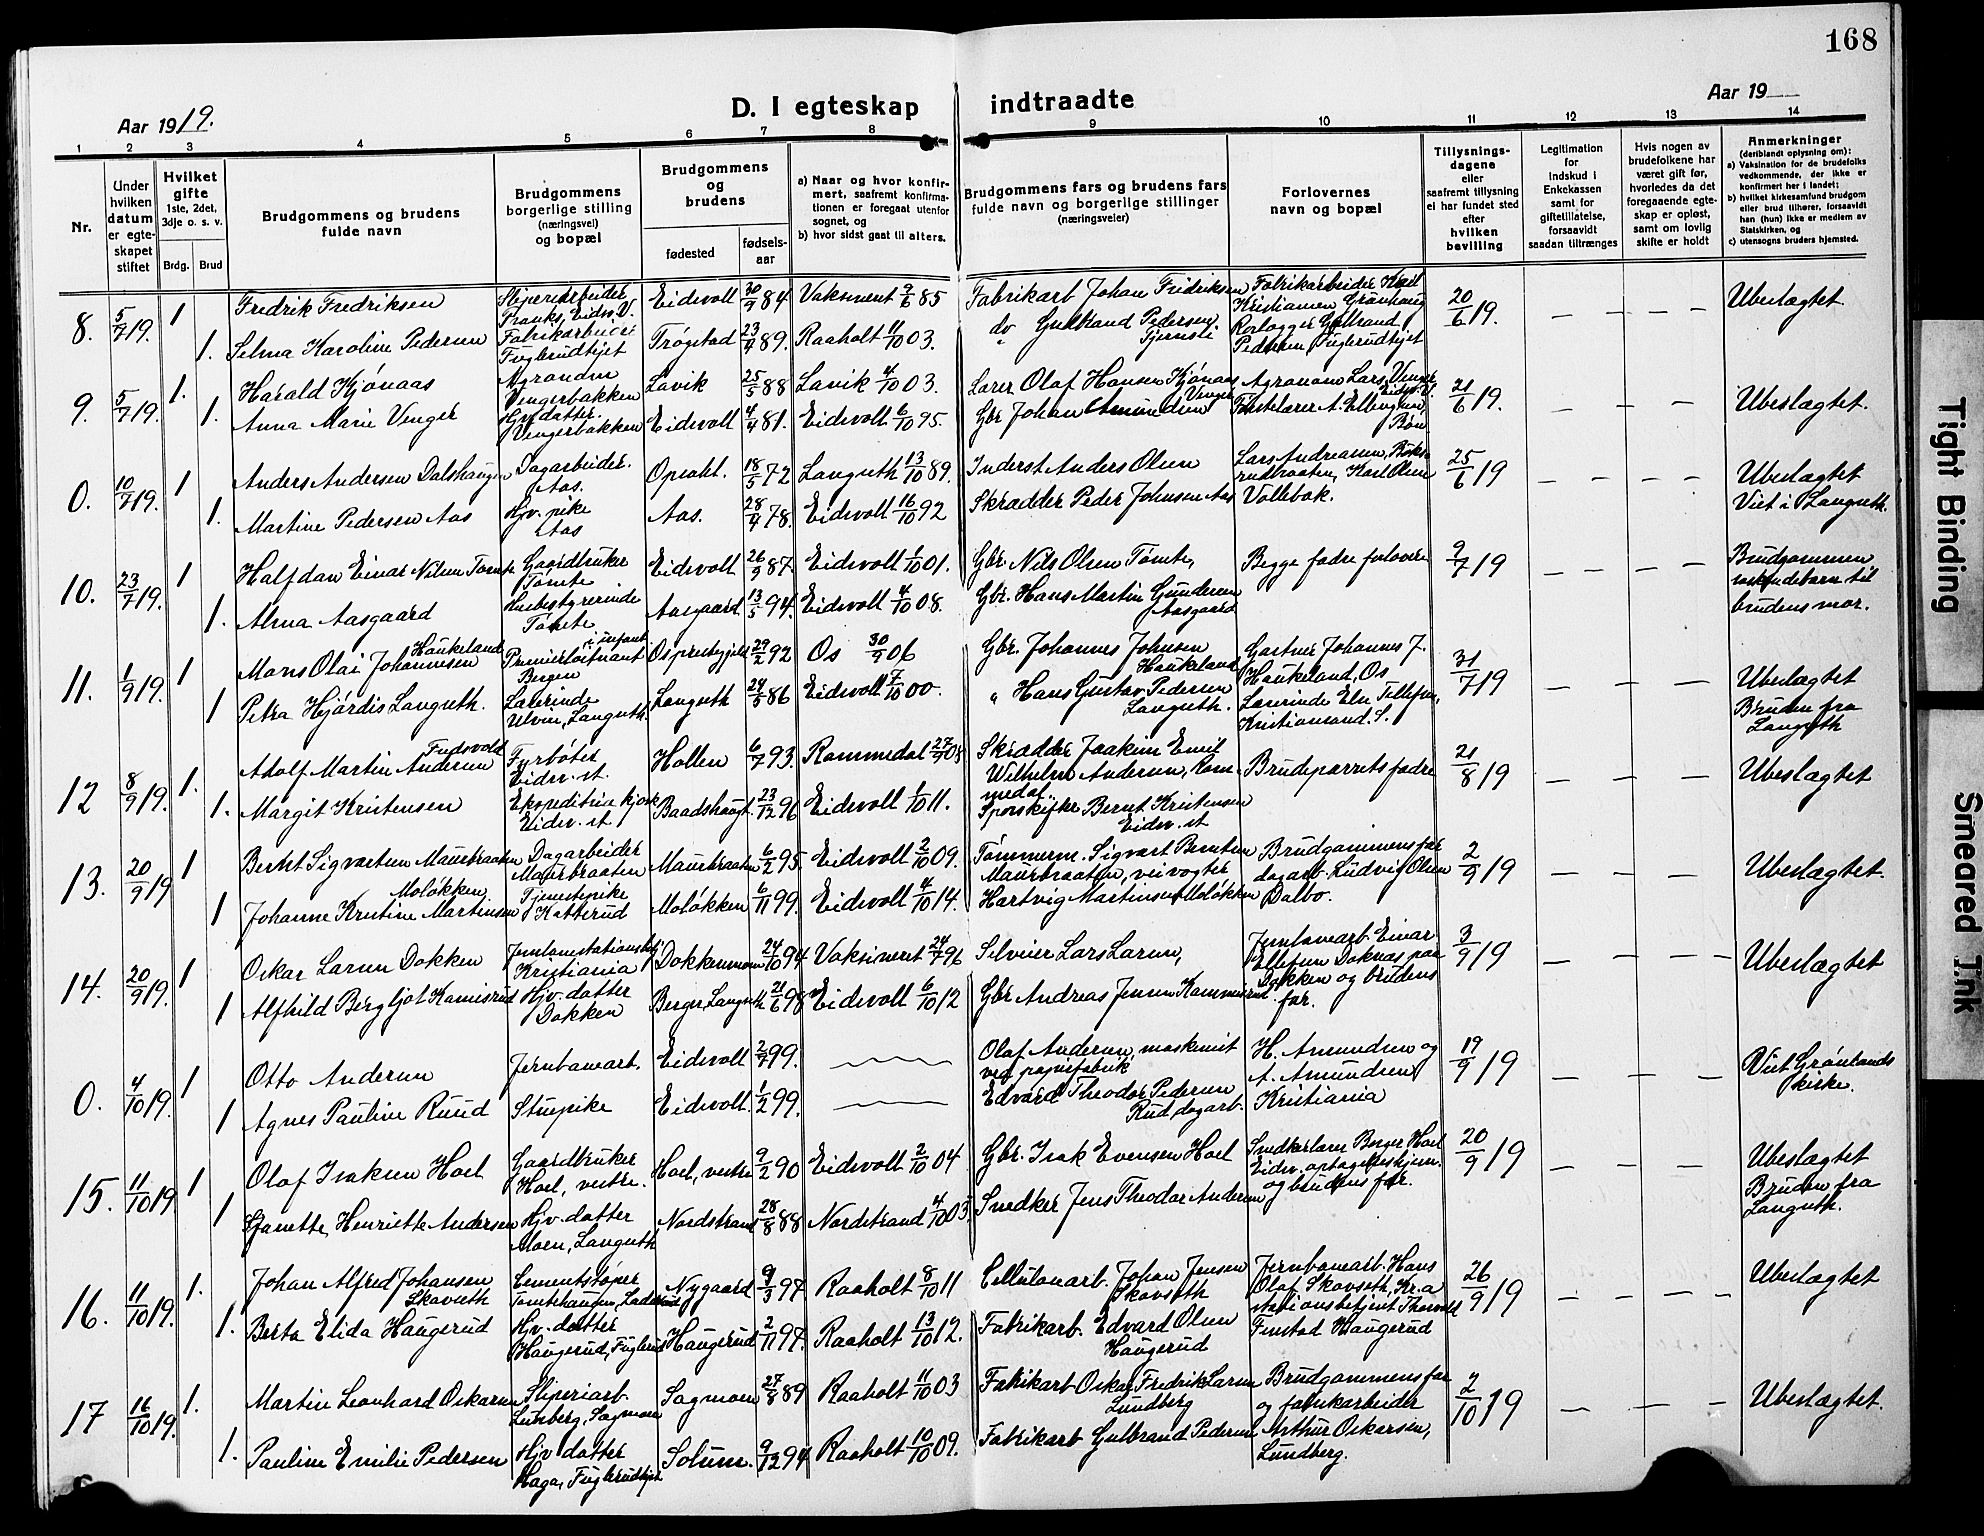 168
D. I egteskap indtraadte
Aar 1919.
Aar 19
1 2 3 4 5 6 7 8 9 10 11 12 13 14
Nr.
Under hvilken datum er egteskapet stiftet
Hvilket gifte 1ste, 2det, 3dje o. s. v.
Brdg. Brud
Brudgommens og brudens fulde navn
Brudgommens borgerlige stilling (næringsvei) og bopæl
Brudgommens og brudens
fødested
fødselsaar
a) Naar og hvor konfirmert, saafremt konfirmationen er foregaat utenfor sognet, og
b) hvor sidst gaat til alters.
Brudgommens fars og brudens fars fulde navn og borgerlige stillinger (næringsveier)
Forlovernes navn og bopæl
Tillysningsdagene eller saafremt tillysning ei har fundet sted efter hvilken bevilling
Legitimation for Indskud i Enkekassen samt for giftetillatelse, forsaavidt saadan tiltrænges
Hvis nogen av brudefolkene har været gift før, hvorledes da det foregaaende egteskap er opløst, samt om lovlig skifte er holdt
Anmerkninger (deriblandt oplysning om):
a) Vaksination for de brudefolks vedkommende, der ikke er konfirmert her i landet;
b) hvilket kirkesamfund brudgom eller brud tilhører, forsaavidt han (hun) ikke er medlem av Statskirken, og
c) utensogns bruders hjemsted.
8. 5/7 19. 1 Fredrik Fredriksen Sliperiarbeider Eidsvoll 30/9 84 Vaksinert 9/6 85 Fabrikarb Johan Fredriksen Fabrikarbeider Karl Kristiansen Grønhaug 20/6 19. Ubeslægtet
1. Selma Karoline Pedersen Fabrikarbeider Fuglerudhjet Trøgstad 23/4 89. Raaholt 11/10 03. do Gulbrand Pedersen, Tjernsli Rørlægger Gulbrand Pedersen, Fuglerudhjet
9. 5/7 19. 1. Harald Kjønaas Agronom Vengerbakken Lavik 25/5 88 Lavik 4/10 03. Lærer Olaf Hansen Kjønaas Agronom Lars Venger Eidsv. V. 21/6 19. Ubeslægtet.
1. Anna Marie Venger Hjv. datter. Vengerbakken Eidsvoll 4/4 81. Eidsvoll 6/10 95. Gbr Johan Amundsen Venger
0. 10/7 19. 1 Anders Andersen Dalshaugen Dagarbeider. Aas. Opsahl. 18/5 72 Langseth 13/10 89. Inderst Anders Olsen Lars Andreassen, Karl Olsen Vollebæk. 25/6 19 Ubeslægtet Viet i Langseth.
1. Martine Pedersen Aas Hjv. pike Aas Aas. 28/4 78. Eidsvoll 16/10 92 Skrædder Peder Johnsen Aas
10. 23/7 19. 1 Halfdan Einar Nilsen Tømte Gaardbruker Tømte Eidsvoll 26/9 87. Eidsvoll 1/10 01. Gbr. Nils Olsen Tømte, Begge fædre forlovere 9/7 19 Brudgommen søskendebarn til brudens mor.
1. Alma Aasgaard Husbestyrerinde Tømte Aasgaard 13/5 94. Eidsvoll 4/10 08. Gbr. Hans Martin Gundersen Aasgaard
11. 1/9 19. 1 Mons Olai Johannesen Haukeland Premierløitnant i infant. Bergen Os prestegjeld 29/2 92 Os 30/9 06 Gbr. Johannes Johnsen Haukeland Gartner Johannes J. Haukeland, Os 31/7 19 Ubeslægtet
1 Petra Hjørdis Langseth. Lærerinde Ulvin, Langseth. Langseth 24/5 86 Eidsvoll 7/10 00. " Hans Gustav Pedersen Langseth. Lærerinde Kristiansand. S. Bruden fra Langseth
12 8/9 19. 1. Adolf Martin Andersen Fudsvold Fyrbøter Eidsv. st. Hollen 6/7 93. Rommedal 27/9 08 Skrædder Joakim Emil Wilhelm Andersen, Rommedal. Brudeparrets fædre 21/8 19 Ubeslægtet
1. Margit Kristensen Eidsv. st. Baadshaugt. 23/12 96 Eidsvoll 1/10 11. Sporskifter Bernt Kristensen Eidsv. st
13. 20/9 19 1 Berntsigvartsen Maurbraaten Dagarbeider Maurbraaten Maurbraaten 6/2 95. Eidsvoll 2/10 09. Tømmerm. Sigvart Berntsen Maurbraaten, veivogter Brudgommens far dagarb. Ludvig Olsen Dalbo. 2/9 19 Ubeslægtet.
1 Johanne Kristine Martinsen Moløkken Tjenestepike Katterud Moløkken 6/11 99. Eidsvoll 4/10 14. Hartvig Martinsen Moløkken
14. 20/9 19. 1 Oskar Larsen Dokken Jernbanestationsbetj. Kristiania Dokkenmoen 24/10 94 Vaksinert 24/7 96 Selveier Lars Larsen, Jernbanearb. Einar Ellefsen Doknæs paa Dokken og brudens far. 3/9 19 Ubeslægtet
1 Alfhild Bergljot Kamisrud Hjv. datter Dokken Berger, Langseth 21/6 98 Eidsvoll 6/10 12 Gbr Andreas Jensen Kammisrud.
0. 4/10 19. 1 Otto Andersen Jernbanearb. Eidsvoll 2/7 99. Olaf Andersen, maskinist ved papirfabrik H. Amundsen og A. Amundsen, Kristiania 19/9 19 Viet Grønlands kirke.
1 Agnes Pauline Ruud Stuepike Eidsvoll. 1/2 99. Edvard Theodor Pedersen Rud, dagarb.
15. 11/10 19. 1 Olaf Isaksen Hoel Gaardbruker Hoel, vestre. Hoel, vestre 9/2 90 Eidsvoll 2/10 04 Gbr. Isak Evensen Hoel Snedkerlærer Borger Hoel Eidsv. optagelseshjem. og brudens far. 20/9 19 Ubeslægtet
1 Hjanette Henriette Andersen Hjv. datter Moen, Langseth Nordstrand 28/8 88 Nordstrand 4/10 03. Snedker Jens Theodor Andersen Bruden fra Langseth.
16. 11/10 19. 1. Johan Alfred Johansen Skavseth Cementstøper Nygaard 9/3 97 Raaholt 8/10 11 Cellulosearb. Johan Jensen Skovseth Jernbanearb. Hans Olaf Skovseth, Kr.a 26/9 19 Ubeslægtet
1. Berta Elida Haugerud Hjv. datter Haugerud, Fuglerud Haugerud 2/11 97. Raaholt 13/10 12. Fabrikarb. Edvard Olsen Haugerud Stationsbetjent Thorvald Finstad Haugerud
17 16/10 19. 1. Martin Leonhard Oskarsen Sliperiarb. Lunberg, Sagmoen Sagmoen 27/8 89 Raaholt 11/10 03 Fabrikarb Oskar Fredrik Larsen Lundberg Brudgommens far og fabrikarbeider 2/10 19 Ubeslægtet.
1. Pauline Emilie Pedersen Hjv datter Haga, Fuglerudhjet Solum. 9/12 94 Raaholt 10/10 09. Fabrikarb Gulbrand Pedersen Arthur Oskarsen, Lundberg.
Tight Binding
Smeared Ink